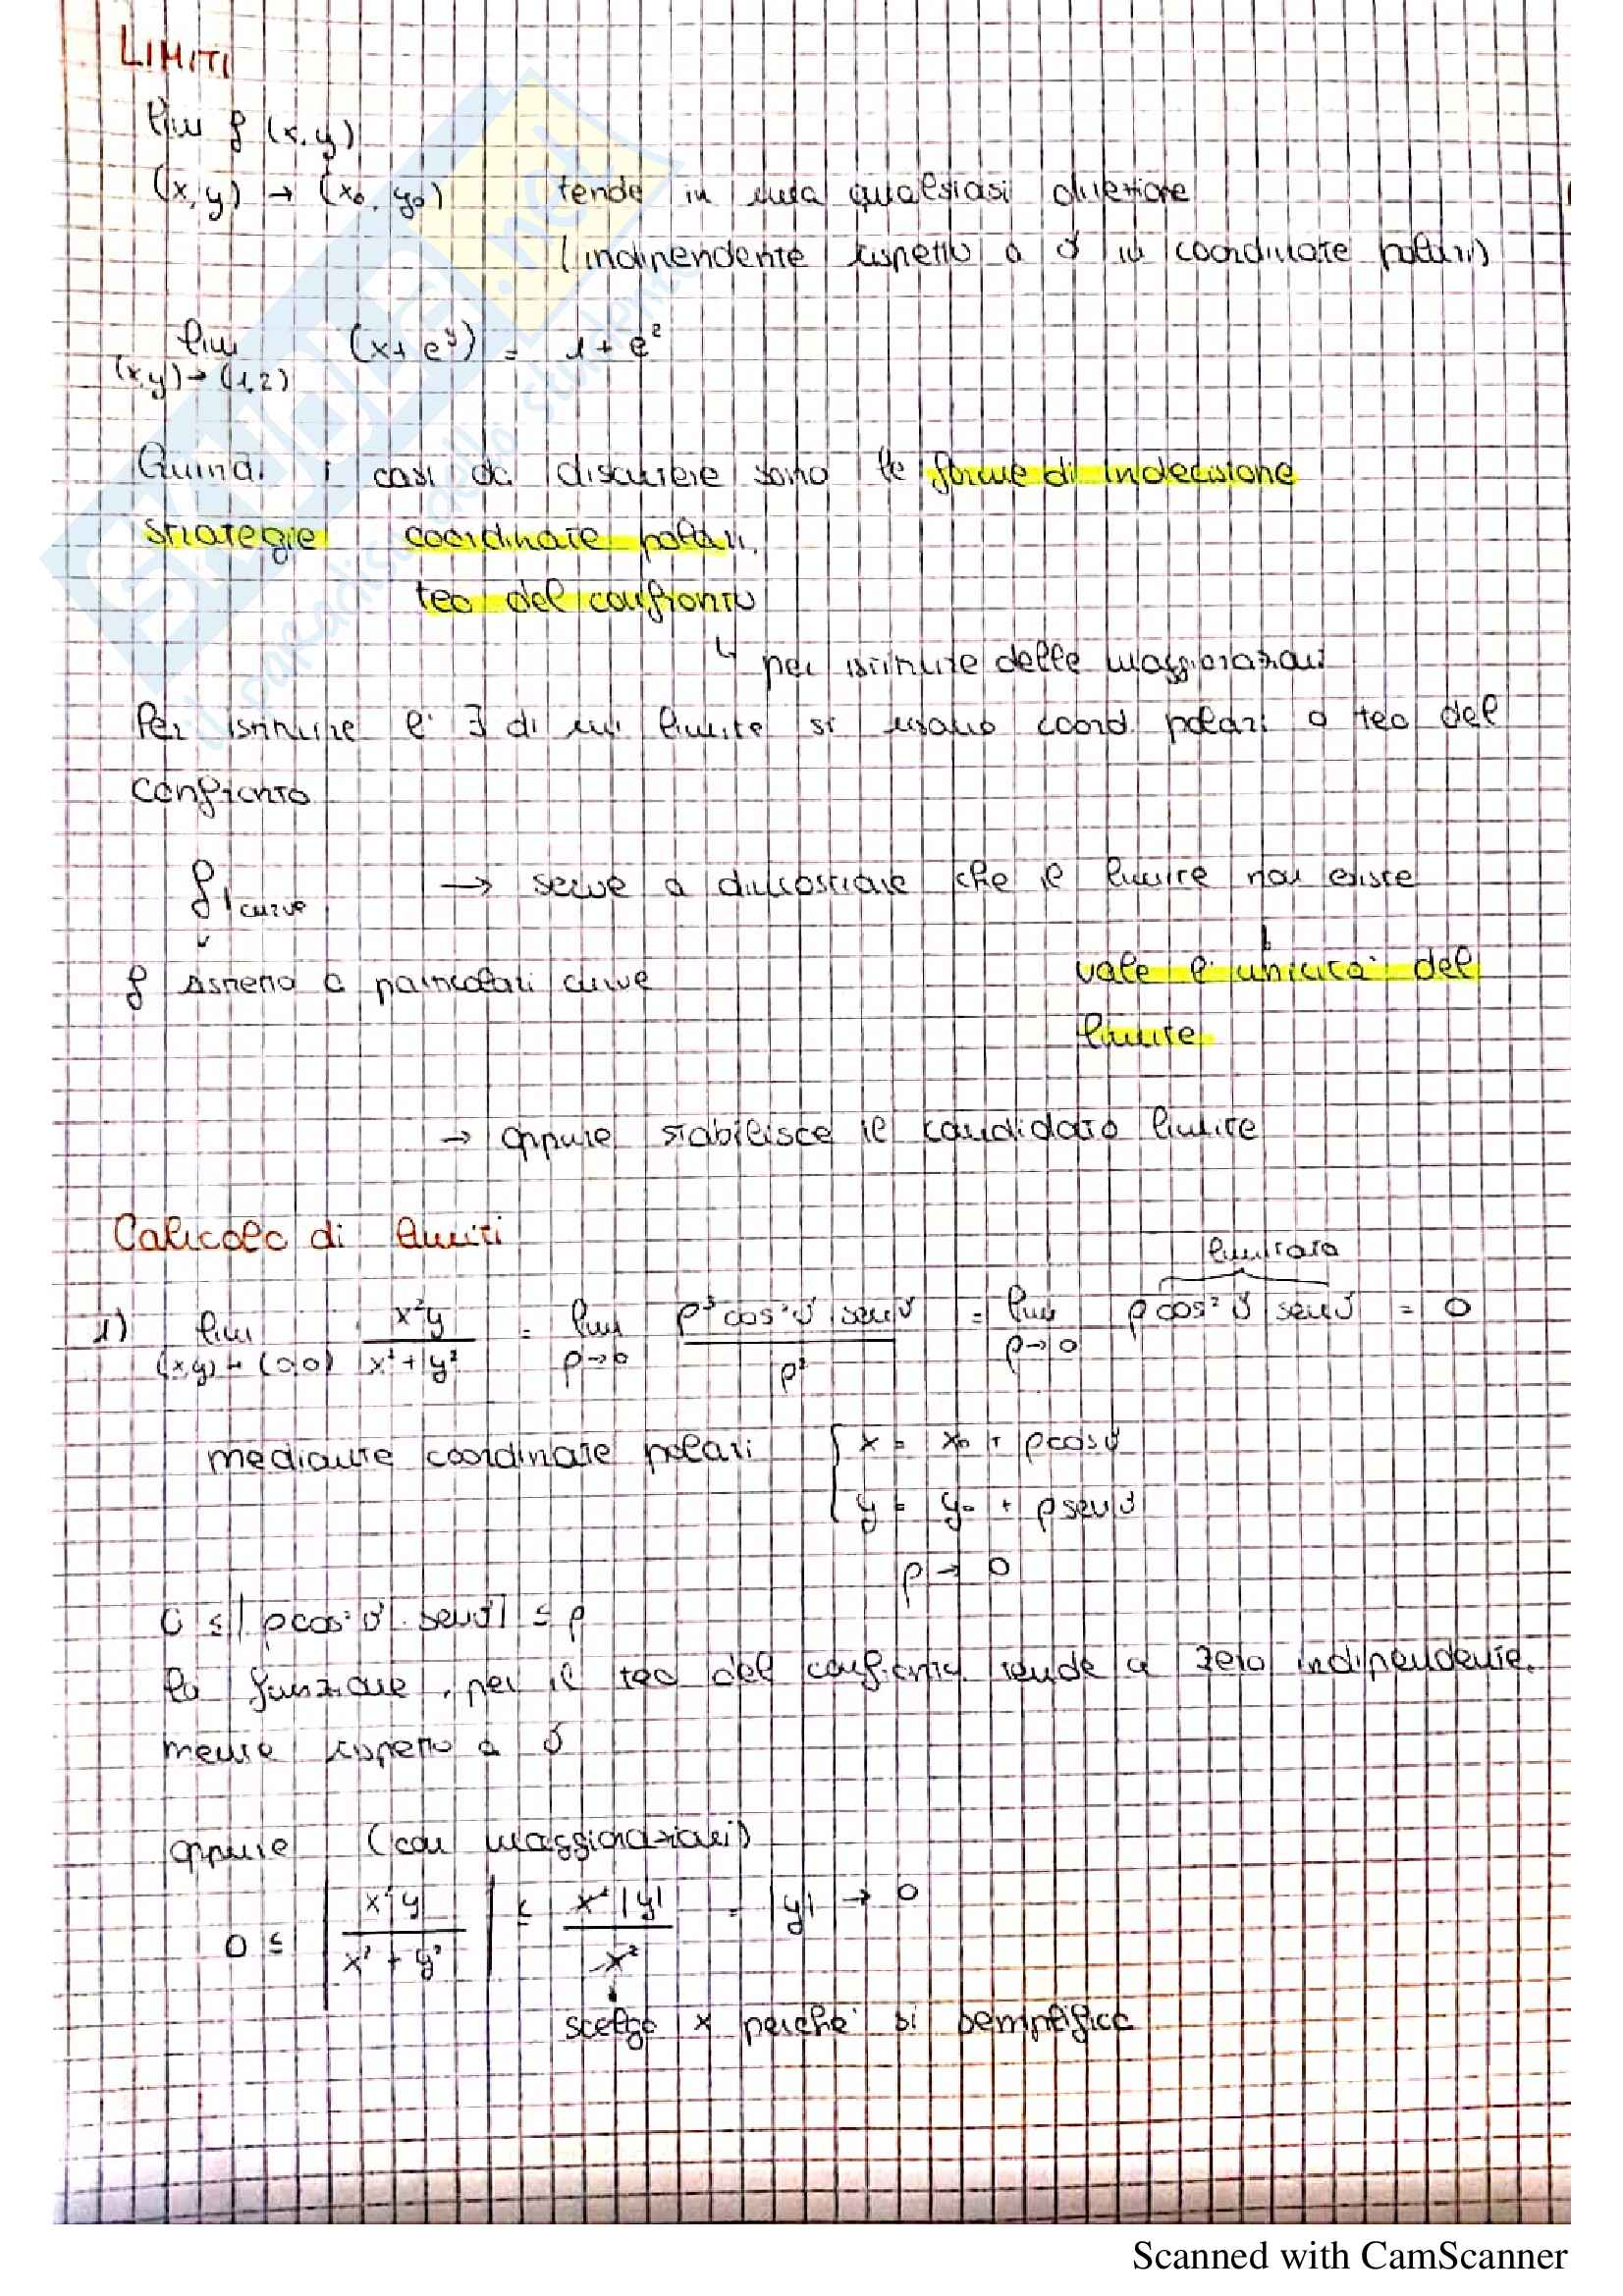 LIMITI
lim f (x,y)
(x,y) → (x₀, y₀) tende in una qualsiasi direzione
(indipendente rispetto a ϑ in coordinate polari)
lim (x + e^y) = 1 + e²
(x,y) → (1,2)
Quindi i casi da discutere sono le forme di indecisione
strategie coordinate polari
teo del confronto
↳ per istituire delle maggiorazioni
Per istituire l'∃ di un limite si usano coord. polari o teo del
confronto
f|curve → serve a dimostrare che il limite non esiste
f ristretta a particolari curve vale l'unicità del
limite
→ oppure stabilisce il candidato limite
Calcolo di limiti
limitata
1) lim x²y / x² + y² = lim ρ³cos²ϑ senϑ / ρ² = lim ρcos²ϑ senϑ = 0
(x,y) → (0,0) ρ→0 ρ→0
mediante coordinate polari { x = x₀ + ρcosϑ
y = y₀ + ρsenϑ
ρ → 0
0 ≤ |ρcos²ϑ · senϑ| ≤ ρ
la funzione, per il teo del confronto tende a zero indipendente.
mente rispetto a ϑ
oppure (con maggiorazioni)
0 ≤ | x²y / x² + y² | ≤ x²|y| / x² = |y| → 0
scelgo x perché si semplifica
SKUOLA.net
il paradiso dello studente
Scanned with CamScanner